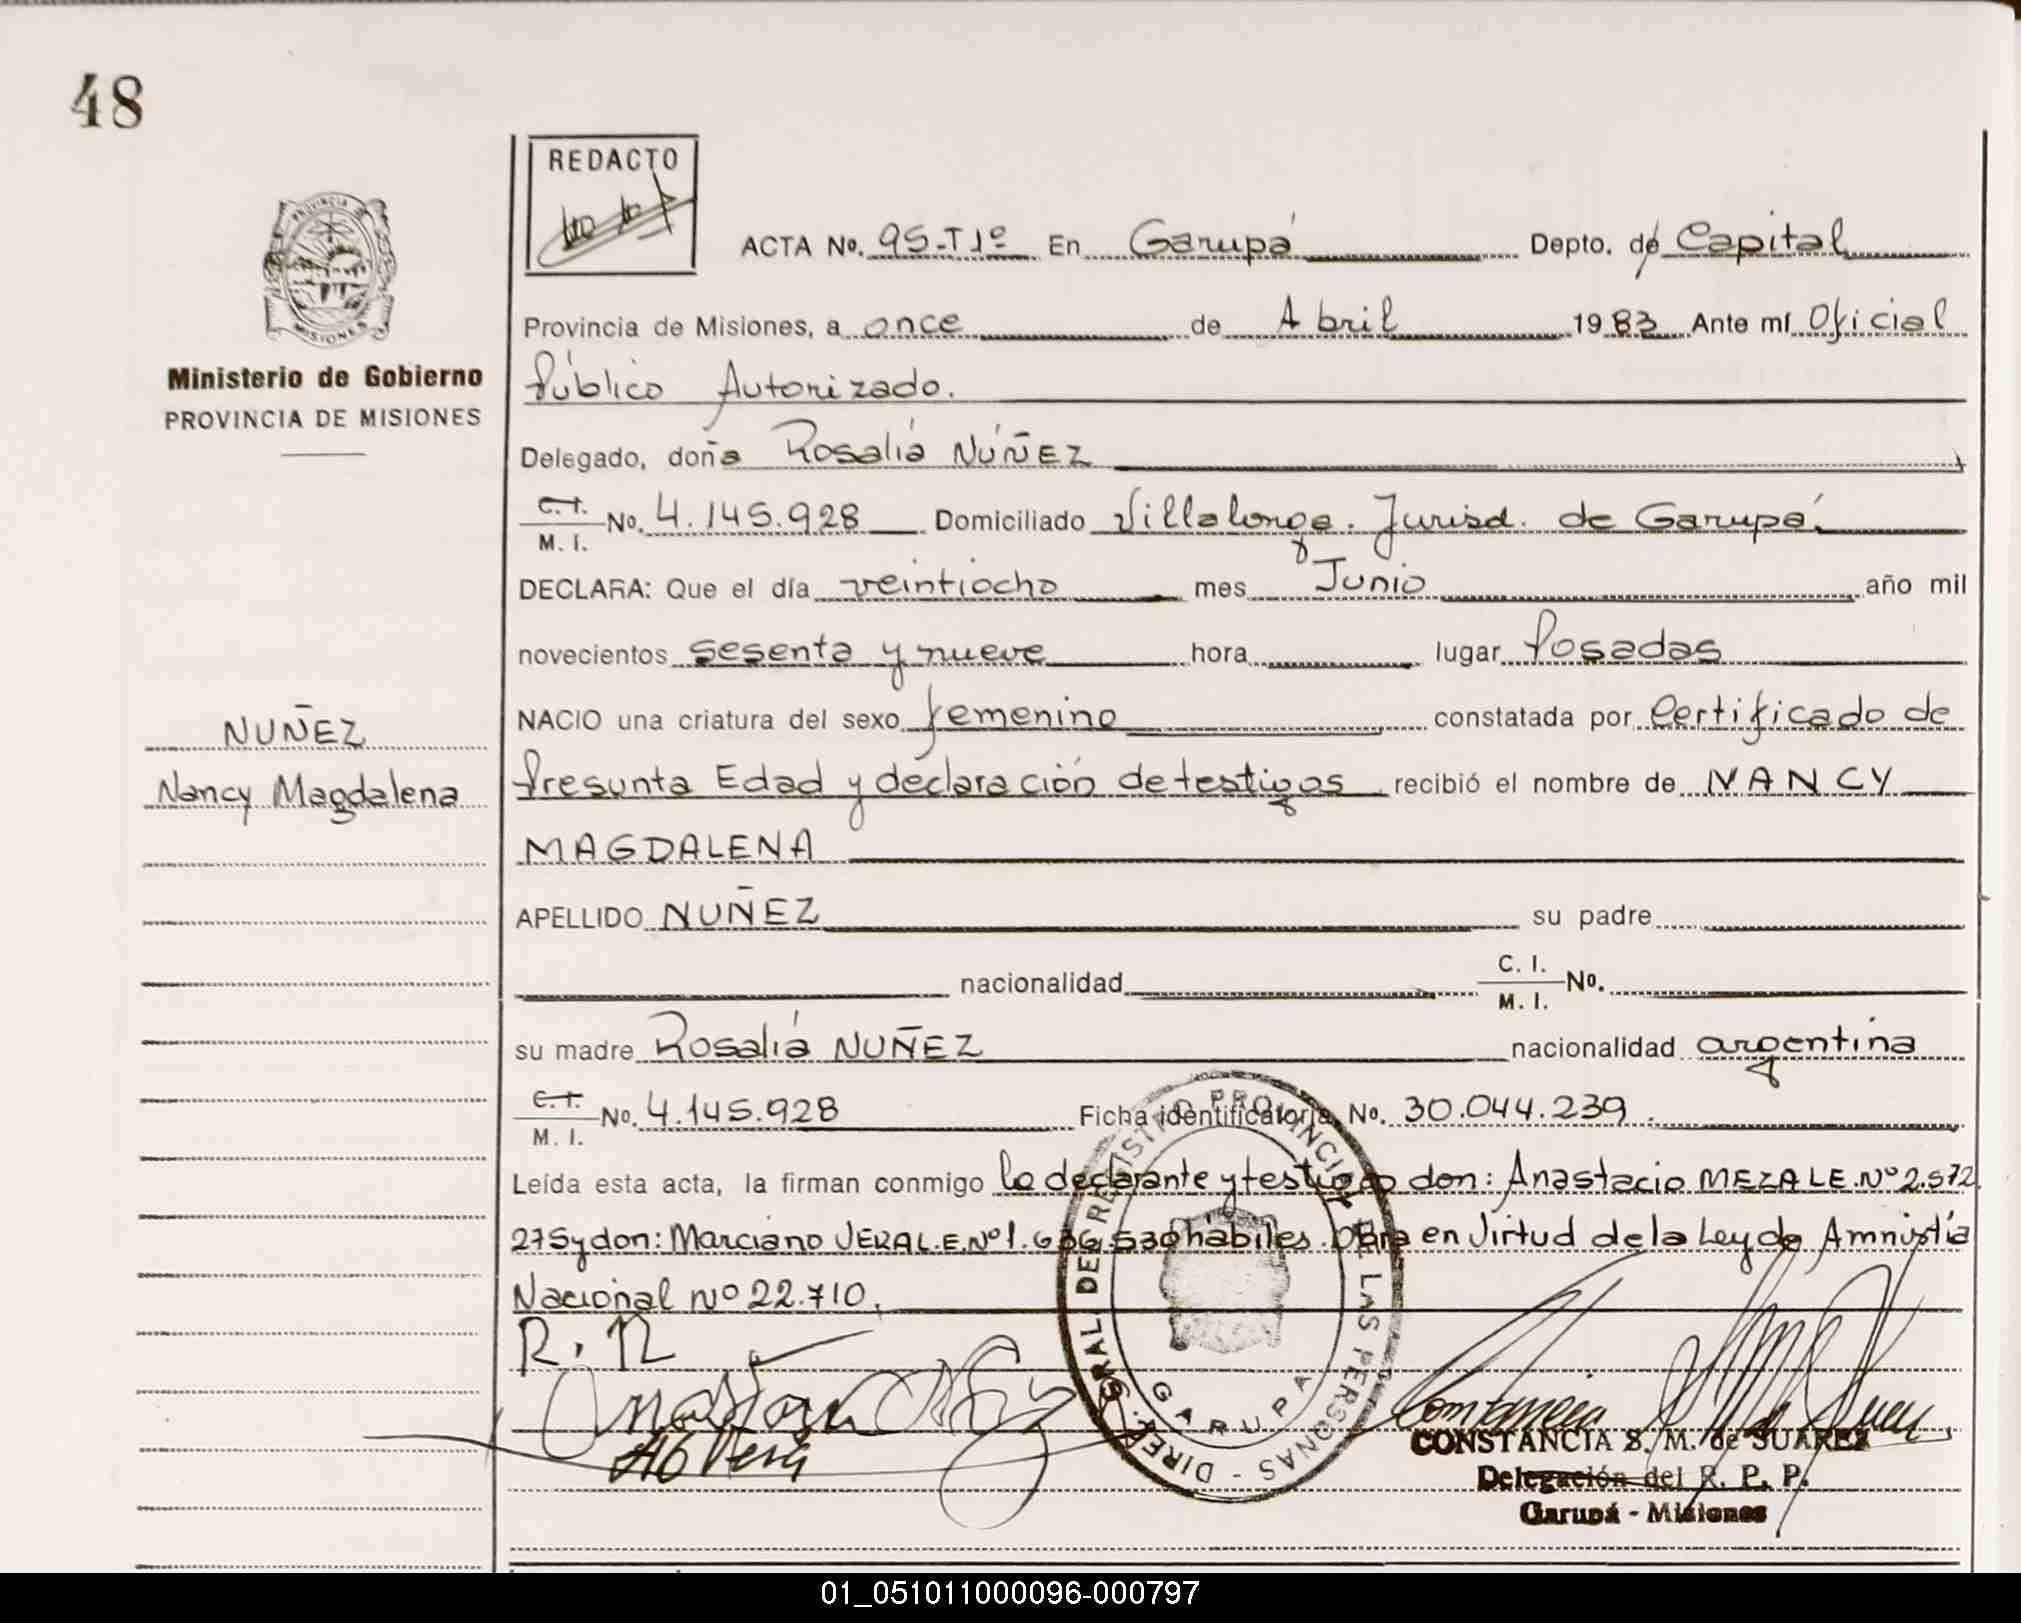 48
REDACTO
PROVINCIA
MISIONES
Ministerio de Gobierno
PROVINCIA DE MISIONES
ACTA No. 95-T1º En Garupá Depto. de Capital
Provincia de Misiones, a once de Abril 1983 Ante mí Oficial
Público Autorizado.
Delegado, doña Rosalía NÚÑEZ
C.I. M. I. No. 4.145.928 Domiciliado Villalonga. Jurisd. de Garupá
DECLARA: Que el día veintiocho mes Junio año mil
novecientos sesenta y nueve hora lugar Posadas
NACIO una criatura del sexo femenino constatada por Certificado de
Presunta Edad y declaración de testigos recibió el nombre de NANCY
MAGDALENA
NUÑEZ
Nancy Magdalena
APELLIDO NUÑEZ su padre
nacionalidad C. I. M. I. No.
su madre Rosalía NUÑEZ nacionalidad argentina
C.I. M. I. No. 4.145.928 Ficha identificatoria No. 30.044.239
Leída esta acta, la firman conmigo la declarante y testigos don: Anastacio MEZA L.E. Nº 2.572.
275 y don: Marciano VERA L.E. Nº 1.636.530 hábiles. Obra en Virtud de la Ley de Amnistía
Nacional Nº 22.710.
R. N
GARUPA
CONSTANCIA S. M. de SUAREZ
Delegación del R. P. P.
Garupá - Misiones
01_051011000096-000797